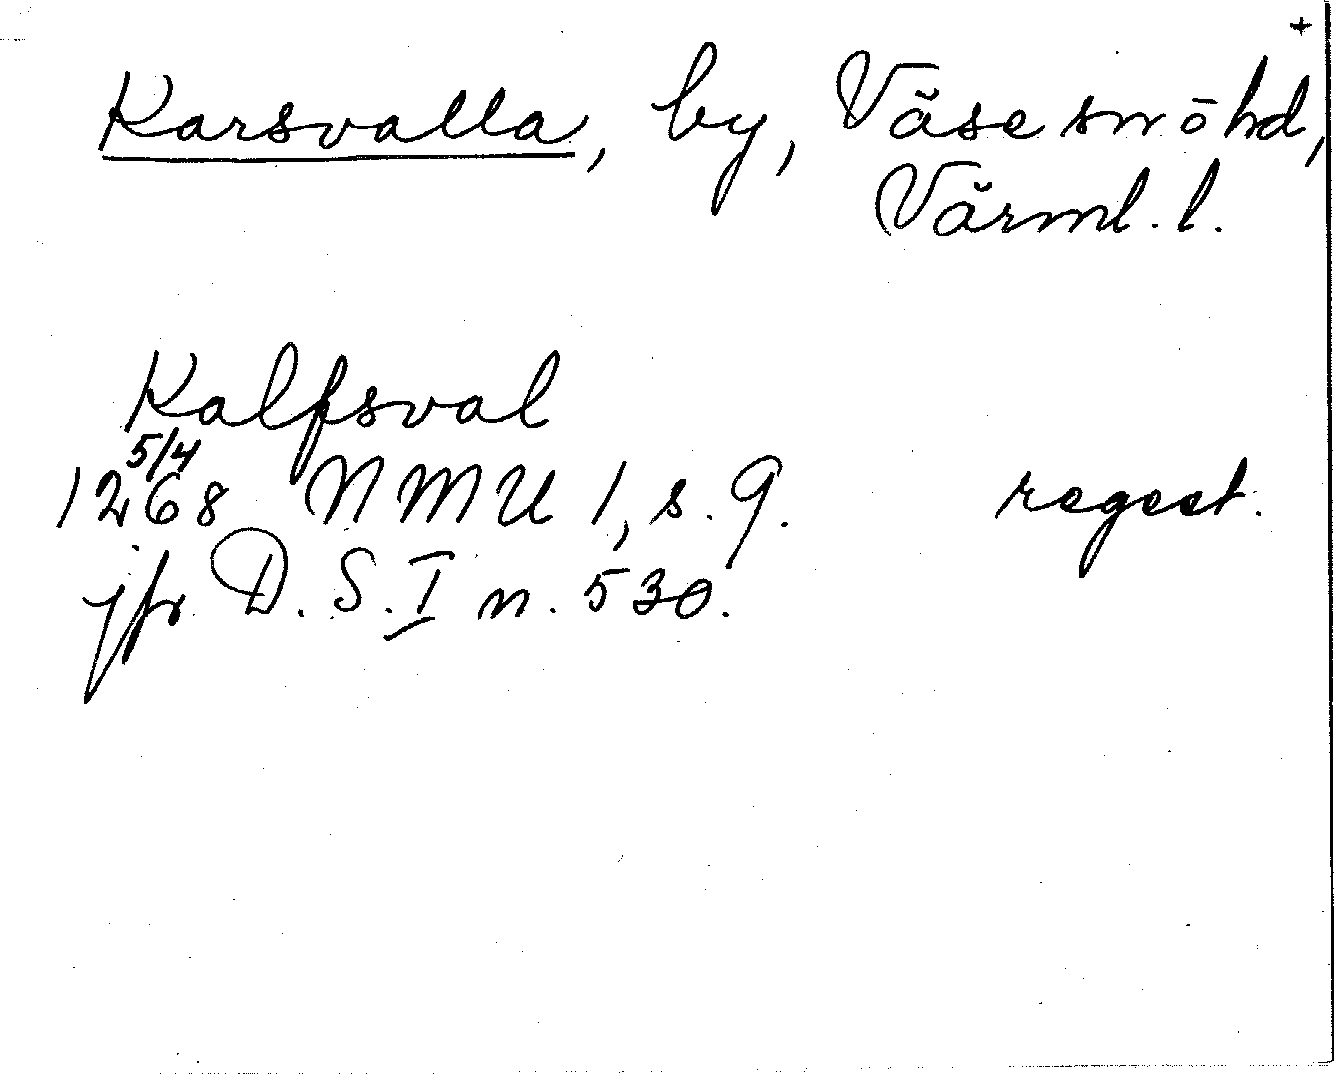 +
Karsvalla, by, Väse sn ö hd,
Värml. l.
Kalfsval
5/4
1268 NMU 1, s. 9. regest.
jfr D. S. I n. 530.